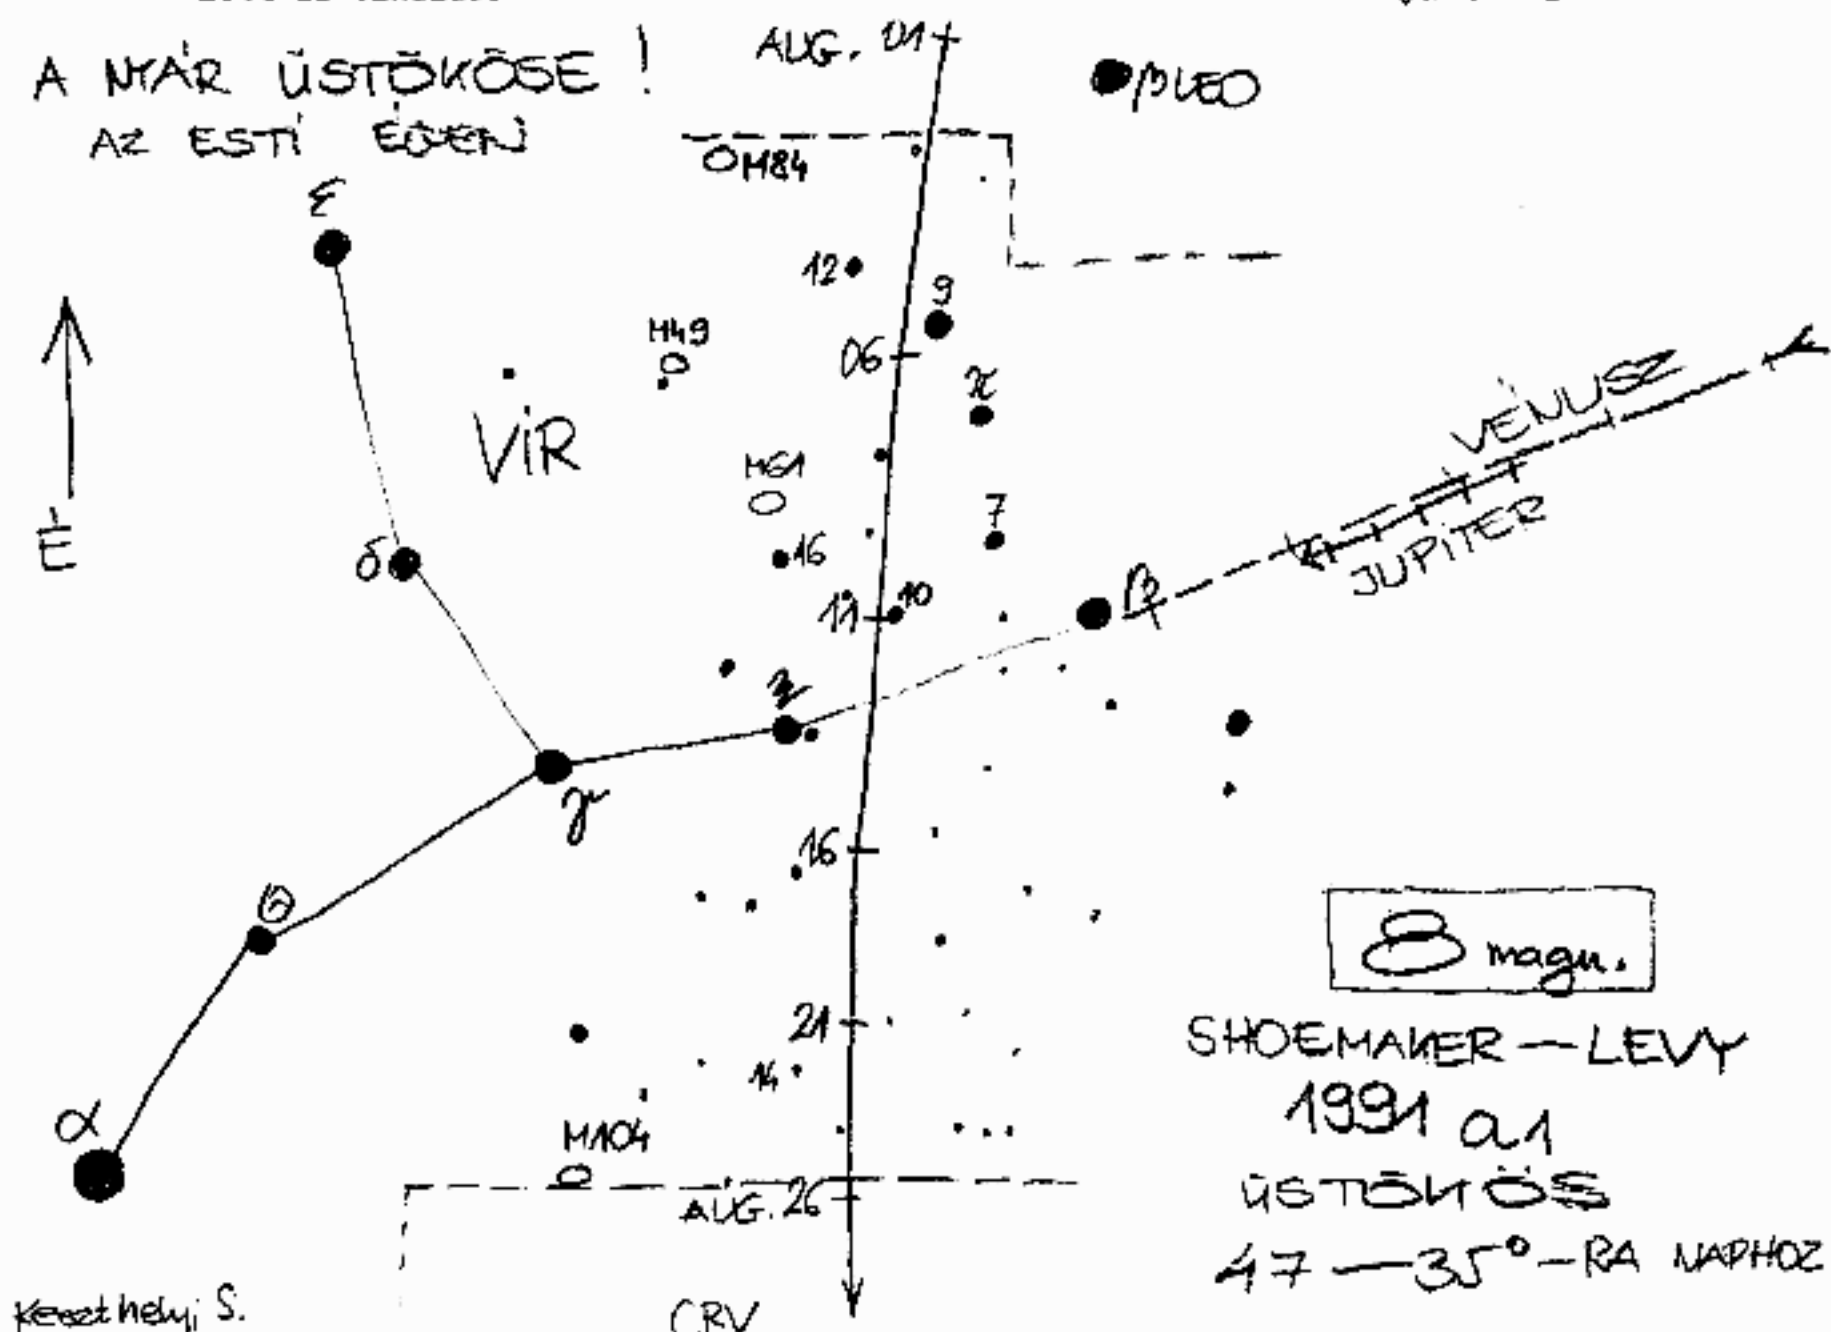 A NYÁR ÜSTÖKÖSE !
AZ ESTI ÉGEN
AUG. 01
βLEO
M84
ε
12
9
M49
06
π
VIR
VÉNUSZ
M61
7
JUPITER
É
δ
16
11
10
β
η
γ
16
θ
8 magn.
21
SHOEMAKER — LEVY
14
1991 a1
α
M104
ÜSTÖKÖS
AUG. 26
47 — 35° - RA NAPHOZ
Keszthelyi S.
CRV